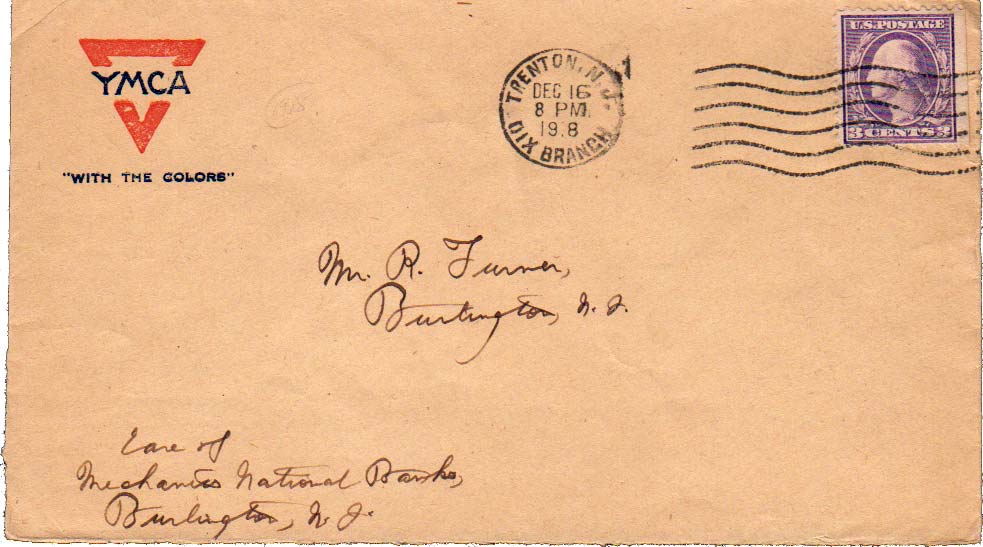 YMCA
"WITH THE COLORS"
TRENTON, N.J.
DEC 16
8 PM
19 8
DIX BRANCH
1
U.S. POSTAGE
3 CENTS 3
Mr. R. Turner,
Burlington, N. J.
Care of
Mechanics National Bank,
Burlington, N. J.